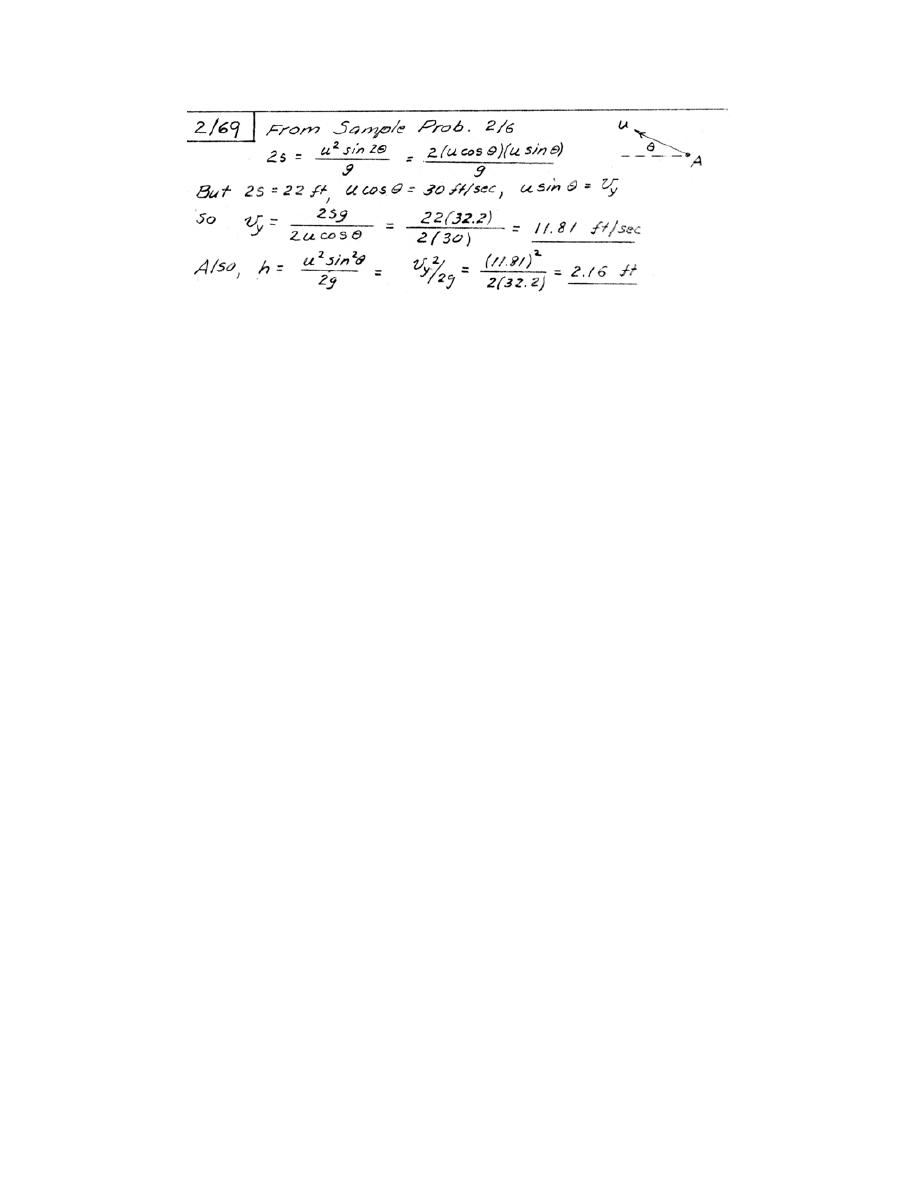 2/69 From Sample Prob. 2/6
u θ A
2s = u² sin 2θ / g = 2(u cos θ)(u sin θ) / g
But 2s = 22 ft, u cos θ = 30 ft/sec, u sin θ = v_y
So v_y = 2sg / 2u cos θ = 22(32.2) / 2(30) = 11.81 ft/sec
Also, h = u² sin² θ / 2g = v_y²/2g = (11.81)² / 2(32.2) = 2.16 ft